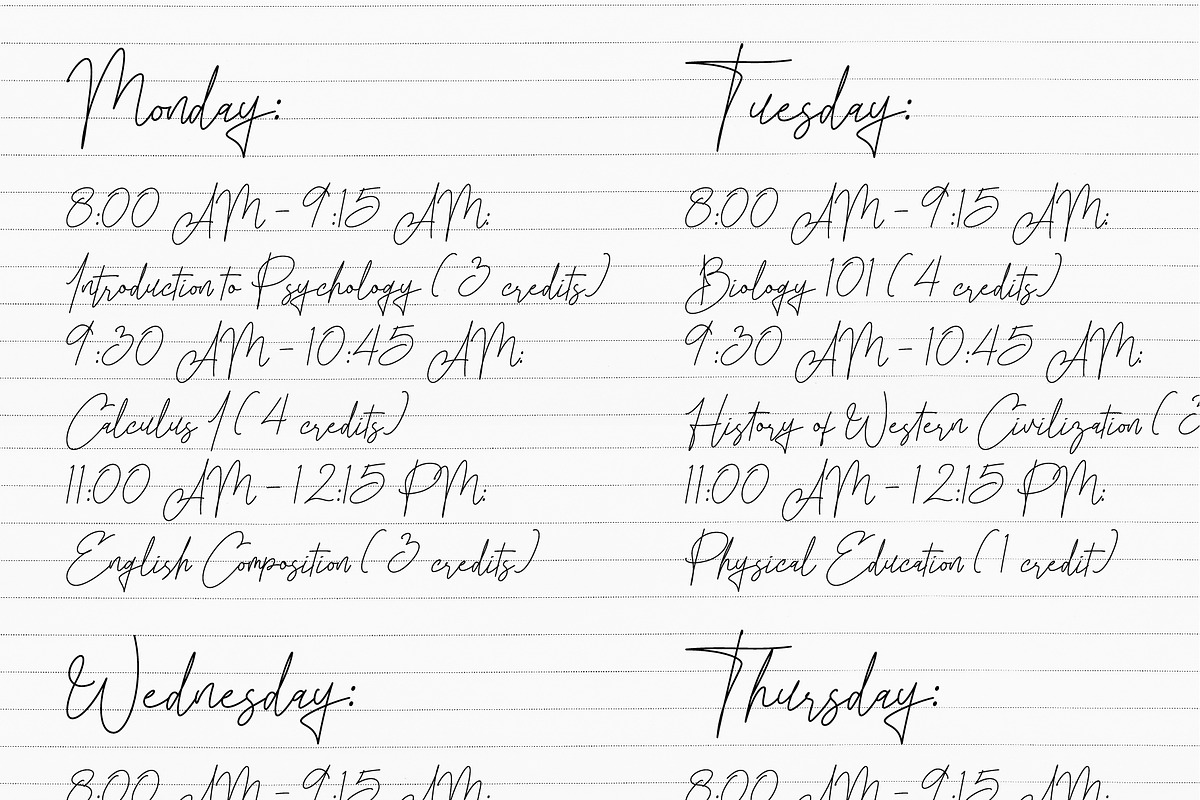 Monday:
8:00 AM - 9:15 AM:
Introduction to Psychology ( 3 credits)
9:30 AM - 10:45 AM:
Calculus 1 ( 4 credits)
11:00 AM - 12:15 PM:
English Composition ( 3 credits)
Tuesday:
8:00 AM - 9:15 AM:
Biology 101 ( 4 credits)
9:30 AM - 10:45 AM:
History of Western Civilization ( 3
11:00 AM - 12:15 PM:
Physical Education ( 1 credit)
Wednesday:
8:00 AM - 9:15 AM:
Thursday:
8:00 AM - 9:15 AM: